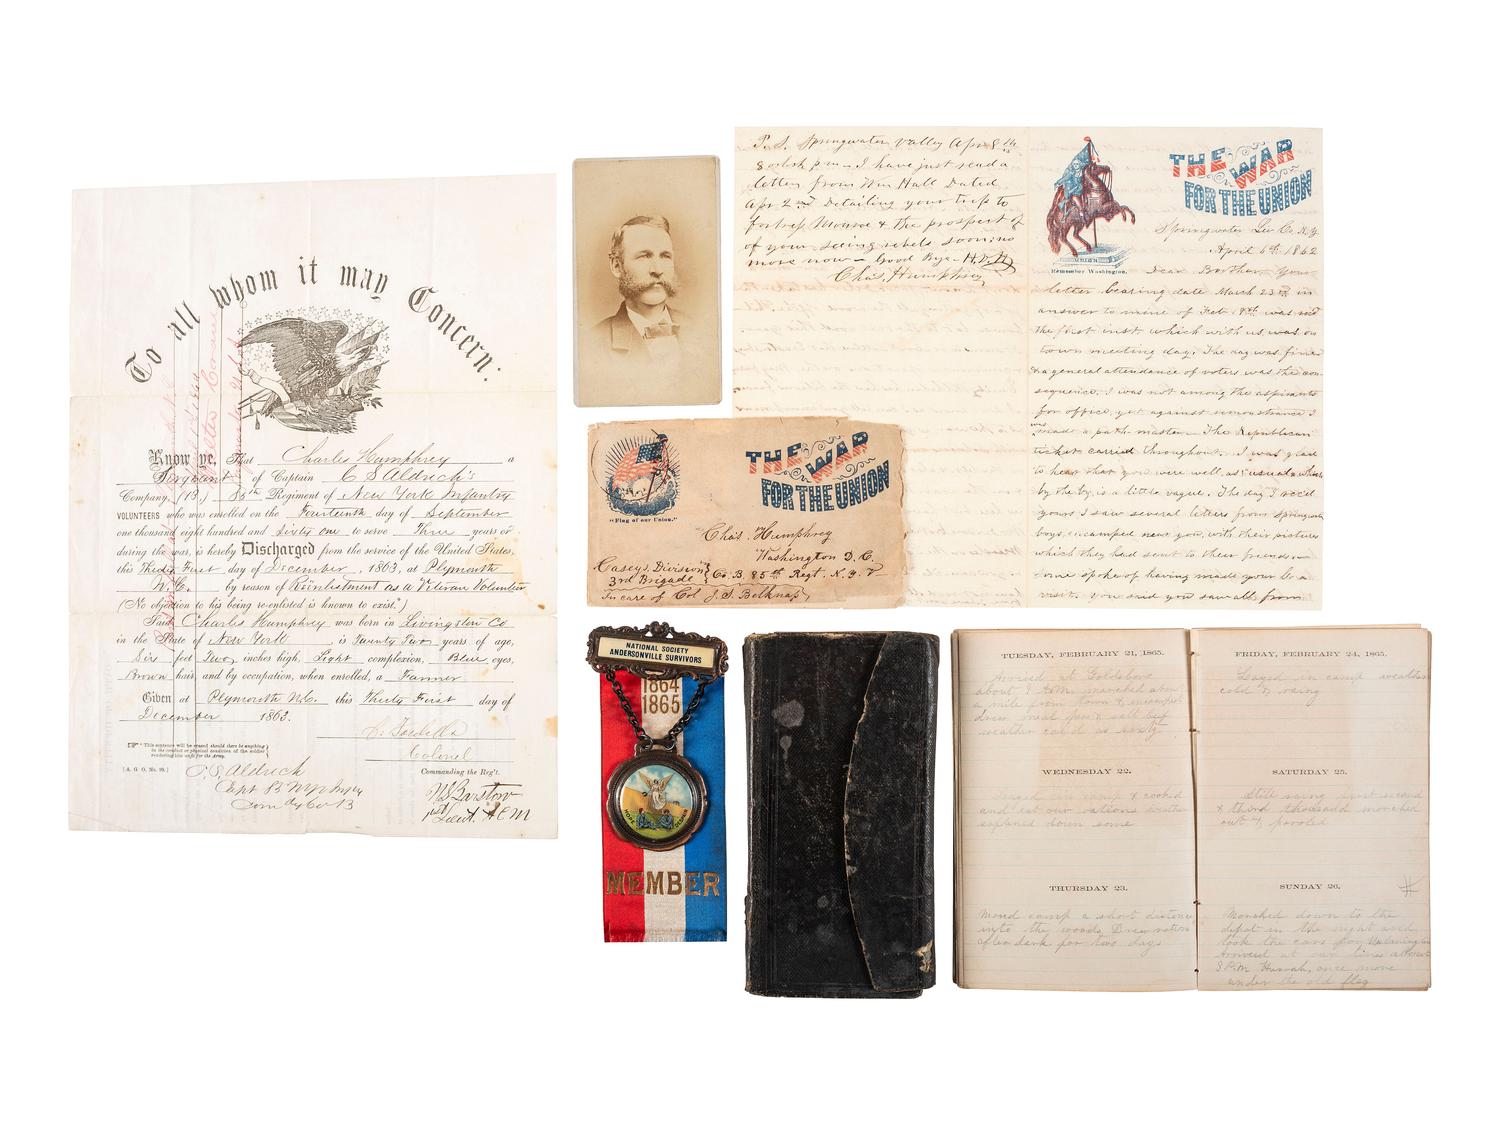 To all whom it may Concern:
Know ye, That Charles Humphrey a
Sergeant of Captain C S Aldrich's
Company, (B,) 85th Regiment of New York Infantry
VOLUNTEERS who was enrolled on the Fourteenth day of September
one thousand eight hundred and Sixty one to serve Three years or
during the war, is hereby Discharged from the service of the United States,
this Thirty First day of December, 1863, at Plymouth
N.C. by reason of Reënlistment as a Veteran Volunteer
(No objection to his being re-enlisted is known to exist.*)
Said Charles Humphrey was born in Livingston Co
in the State of New York is Twenty Two years of age,
Six feet Two inches high, Light complexion, Blue eyes,
Brown hair, and by occupation, when enrolled, a Farmer
Given at Plymouth N.C. this Thirty First day of
December 1863.
Colonel
Commanding the Reg't.
*This sentence will be erased should there be anything
in the conduct or physical condition of the soldier
rendering him unfit for the Army.
[A. G. O. No. 99.]
C. S. Aldrich
Capt B
1st Lieut. A C M
P. S. Springwater Valley Apr 8th
8 oclock p.m. I have just read a
letter from Wm Hall Dated
Apr 2nd Detailing your trip to
fortress Monroe & the prospect of
of your seeing rebels soon; no
more now - Good Bye -
Chas, Humphrey
UNION
Remember Washington.
THE WAR
FOR THE UNION
Springwater Liv Co. N.Y.
April 6th 1862
Dear Brother, Your
letter bearing date March 23rd in
answer to mine of Feb was rec'd
the first inst which with us, was on
town meeting day. The day was fine
& a general attendance of voters was the con-
sequence. I was not among the aspirants
for office, yet against remonstrance I
was made a path master - The Republican
ticket carried throughout. I was glad
to hear that you were well, as usual, which
by the by is a little vague. The day I rec'd
yours I saw several letters from Springwater
boys, encamped near you, with their pictures
which they had sent to their friends -
some spoke of having made your be a
visit. you said you saw all from
"Flag of our Union."
THE WAR
FOR THE UNION
Chas. Humphrey
Washington D. C.
Caseys, Division
3rd Brigade } Co. B. 85th Regt. N. Y. V
In care of Col J. S. Belknap
NATIONAL SOCIETY
ANDERSONVILLE SURVIVORS
1864
1865
MEMBER
TUESDAY, FEBRUARY 21, 1865.
Arrived at Goldsboro
about 1 A.M. marched about
a mile from town & encamped
drew meal & salt beef
weather cold & nasty
WEDNESDAY 22.
in camp & cooked
and eat our rations weather
some
THURSDAY 23.
Moved camp a short distance
into the woods. Drew rations
after dark for two days
FRIDAY, FEBRUARY 24, 1865.
Layed in camp weather
cold & rainy
SATURDAY 25.
Still rainy first second
& third thousand marched
out & paroled
SUNDAY 26.
Marched down to the
depot in the night and
took the cars for Wilmington
arrived at our lines about
3 P.M. Hurrah, once more
under the old flag